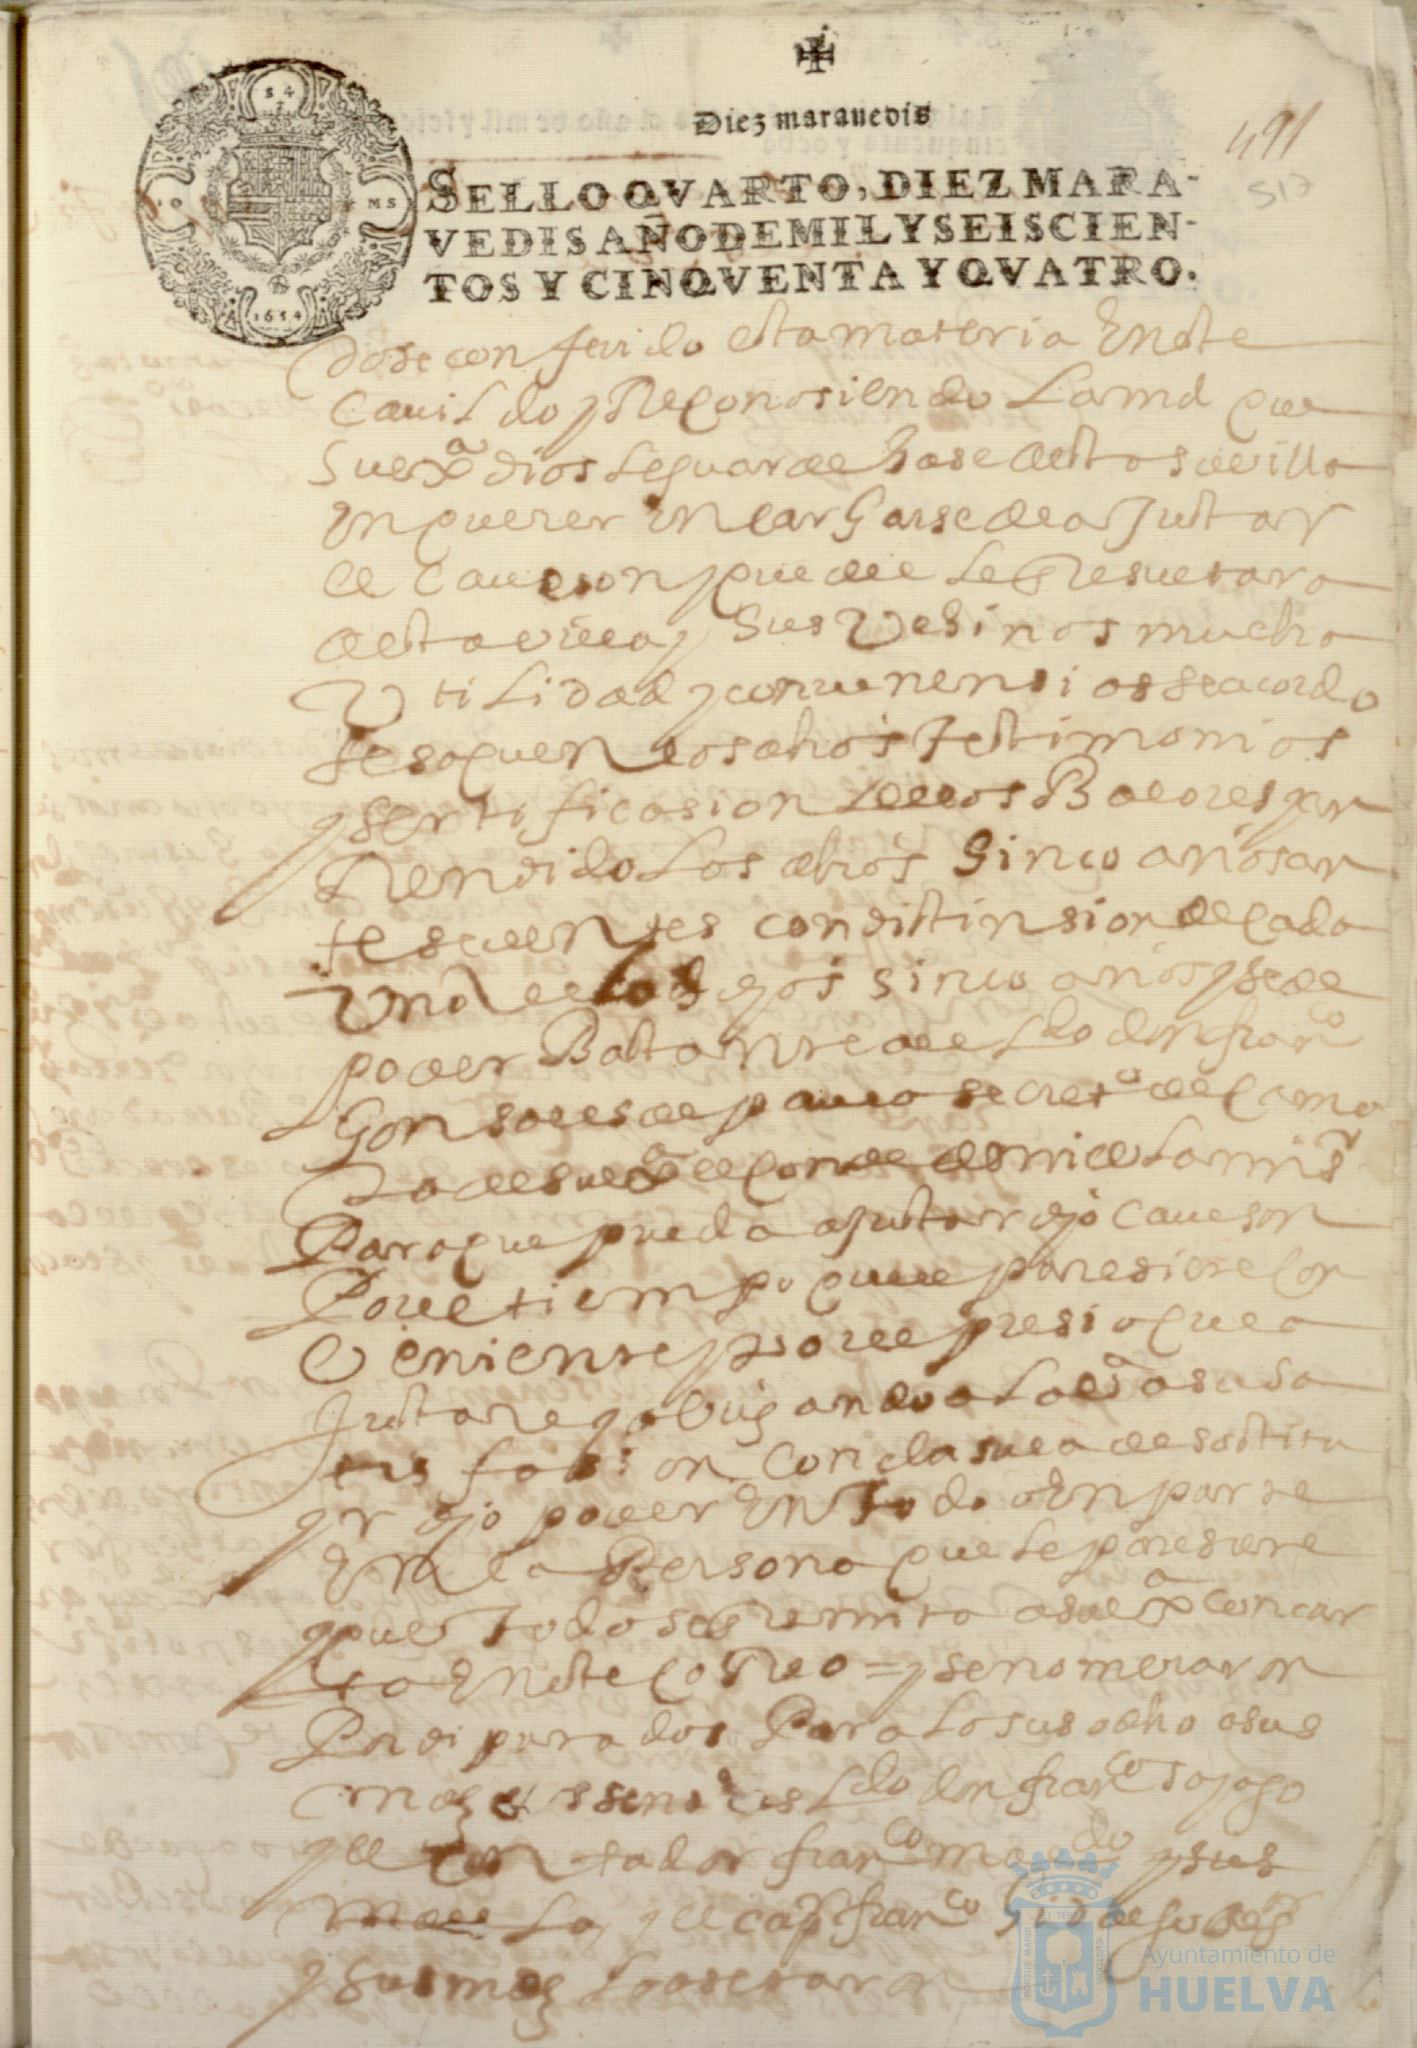 Diez maravedis
491
517
SELLO QVARTO, DIEZ MARA-
VEDIS AÑO DE MIL Y SEISCIEN-
TOS Y CINQVENTA Y QVATRO.
54
10 MS
1654
dose conferido esta materia En este
Cavildo y Reconosiendo La md que
Su exa dios le guarde hase a esta su villa
En querer Encargarse de a Justar
el Caveson que de el le Resultara
a esta villa y sus Vesinos mucha
Vtilidad y conveniensi os se acordo
se saquen los dhos Testimonios
y sertificasion de los Balores que an
Rendido Los dhos sinco años an
tesedentes con distinsion de cada
Vno de los dhos sinco años y se de
poder Bastante a el Ldo don franco
Gonsales de secreto de Cama
ra de su exa el Conde
Para que pueda ajustar dho Caveson
Por el tiempo que le paresiere Con
Veniente y por el presio que a
Justare y obligando a La va a su sa
tisfasion Con clasula de sostitu
yr dho poder En todo o En parte
En la Persona que le paresiere
que todo se Remita a su exa con car
ta En este Correo = y se nomeraron
Por diputados Para lo susodho a sus
mds Ldo don franco
y el Contador franco y sus
y el capn franco
y sus mds Lo asetaron
Ayuntamiento de
HUELVA